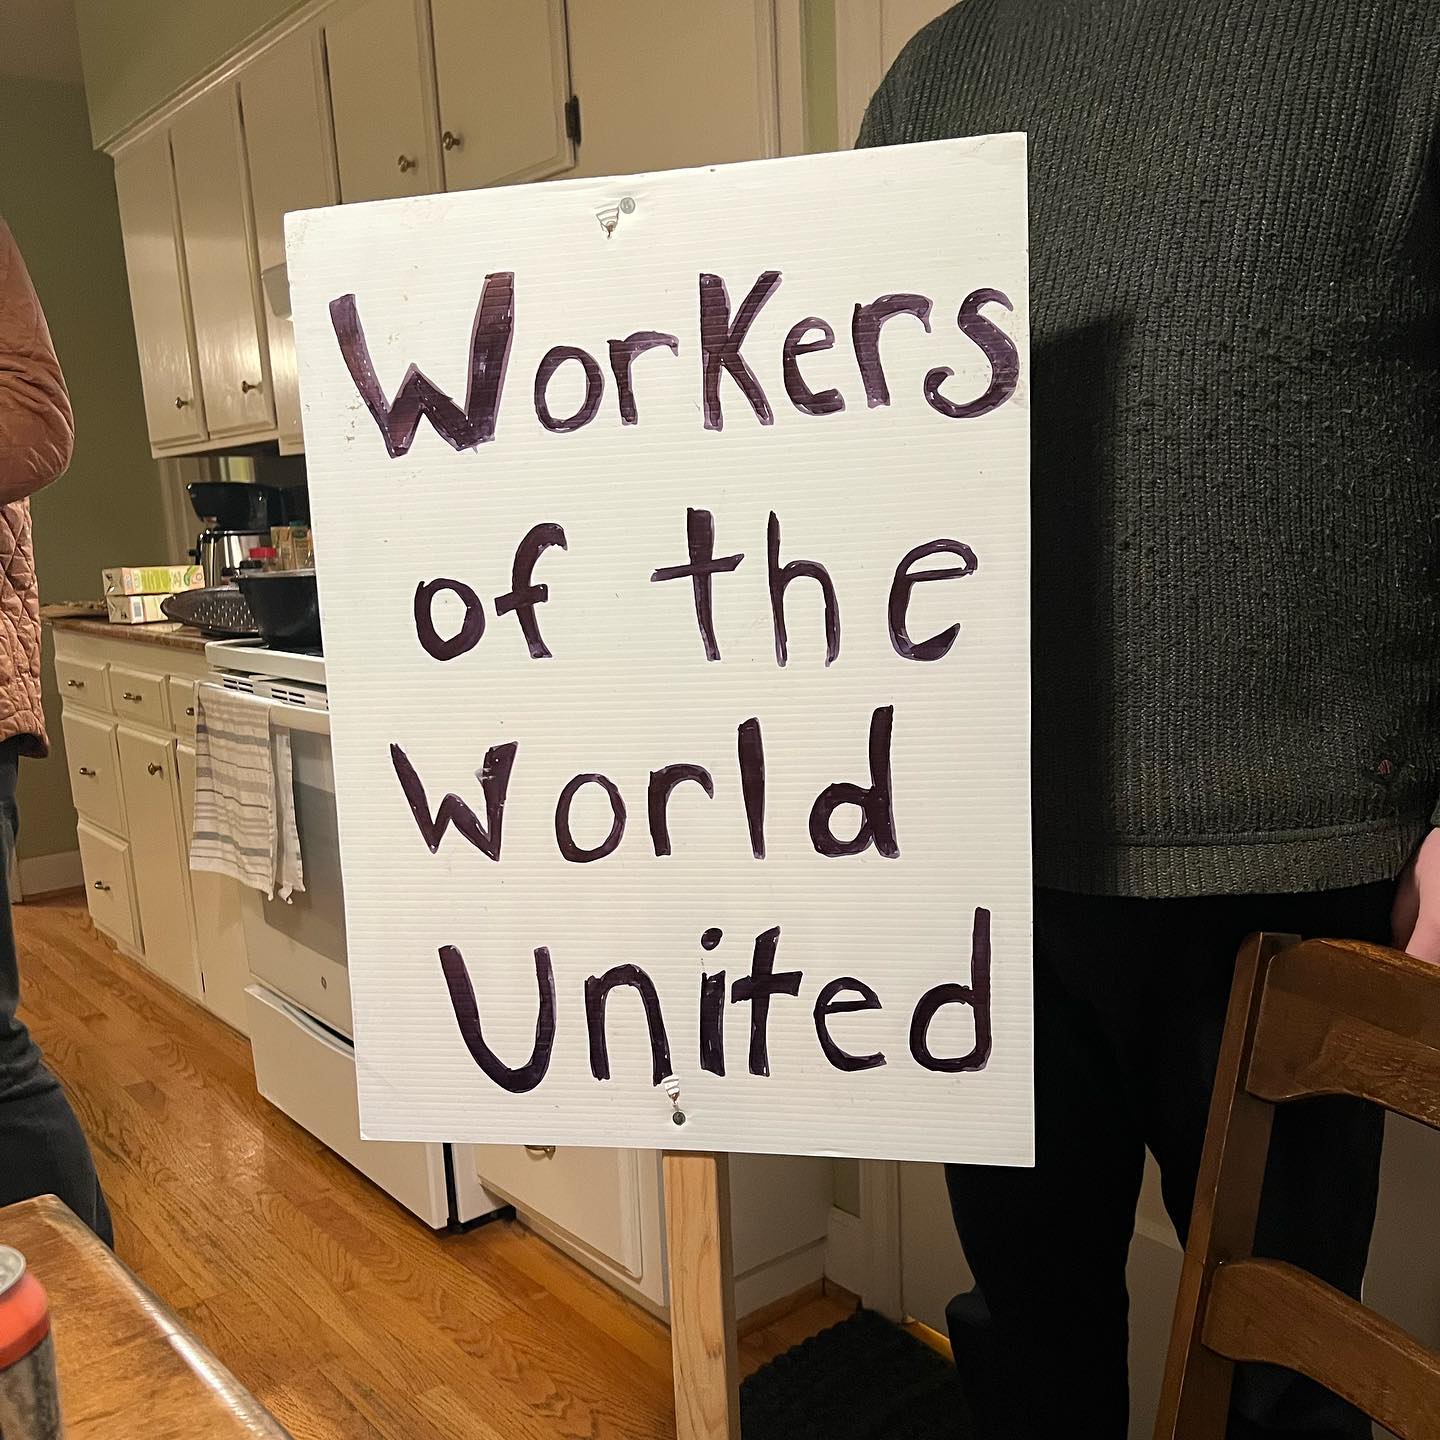 Workers
of the
World
United